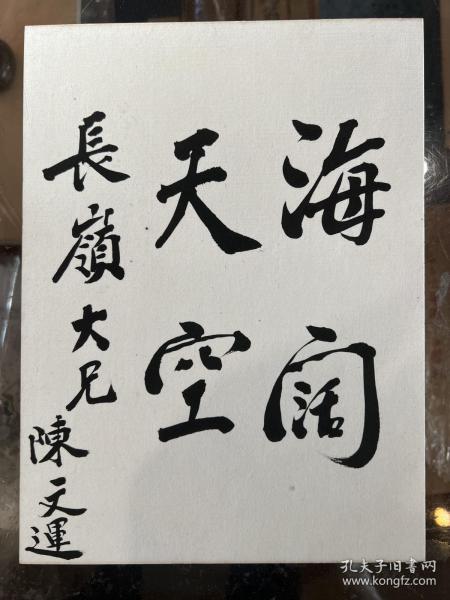 海闊
天空
長嶺大兄
陳文運
孔夫子旧书网
www.kongfz.com